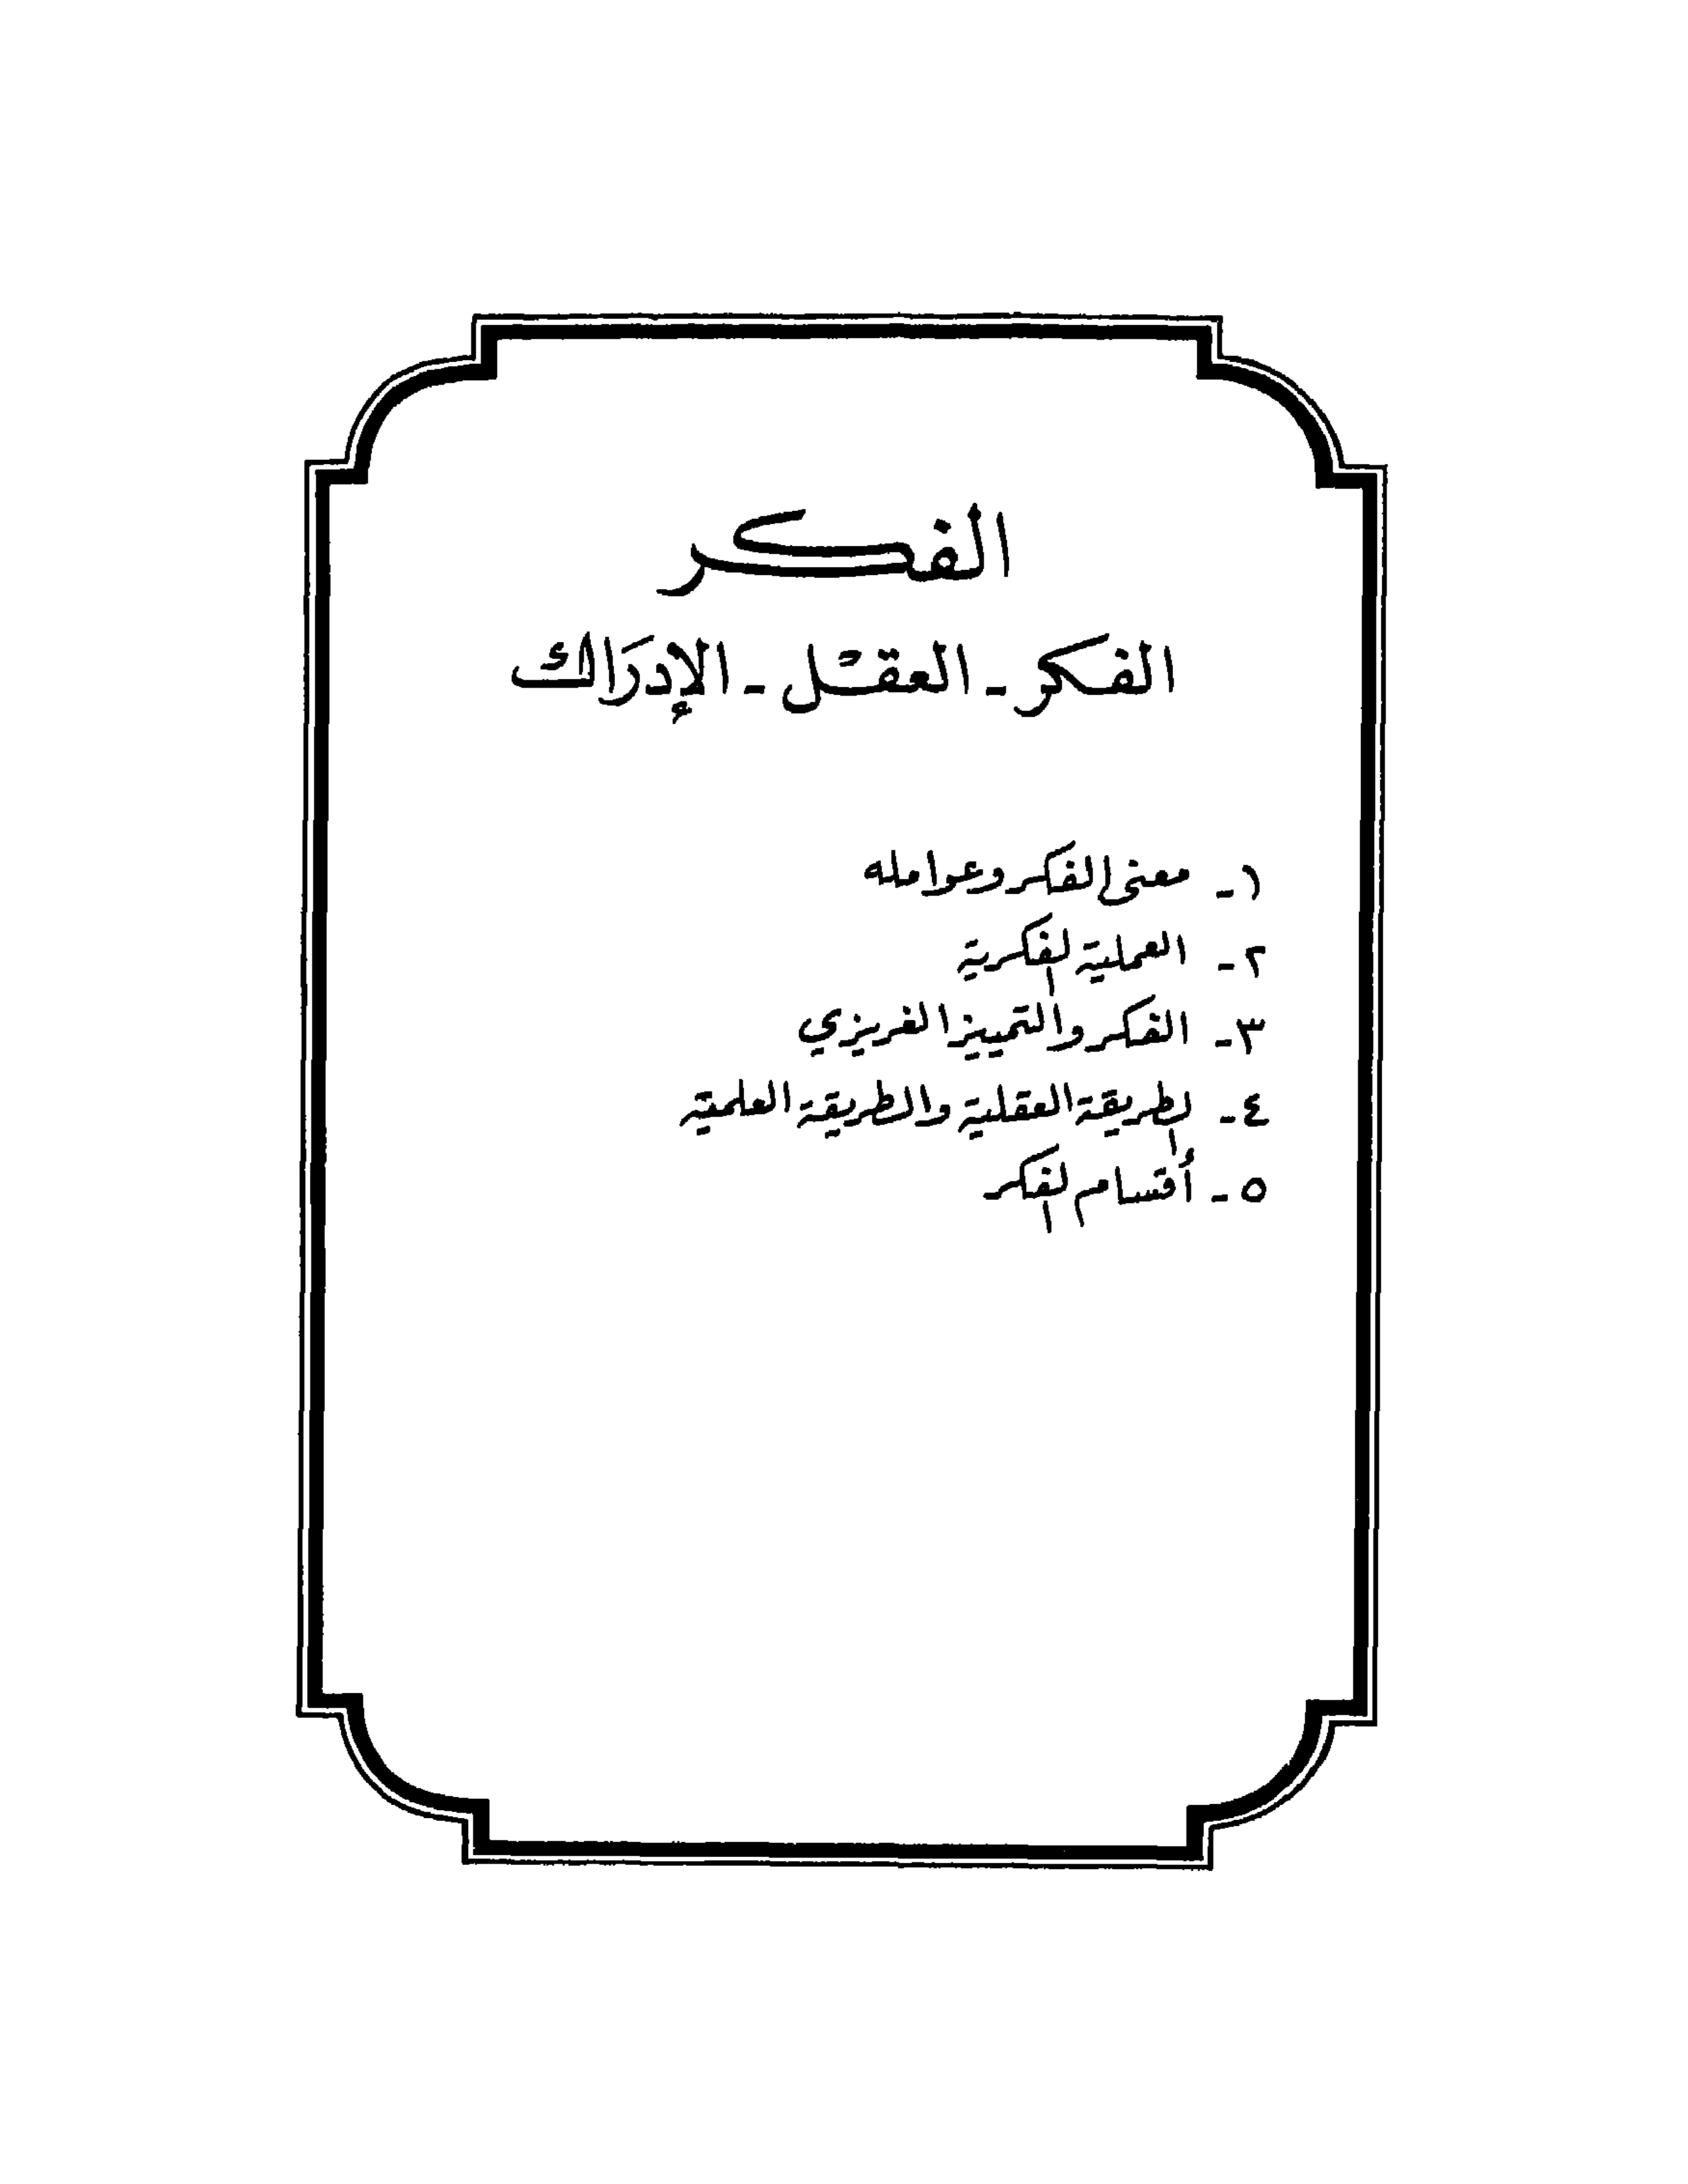 الفكر
الفكر - العقل - الإدرَاك
١- معنى الفكر وعوامله
٢- العملية الفكرية
٣- الفكر والتمييز الغريزي
٤- الطريقة العقلية والطريقة العلمية
٥- أقسام الفكر